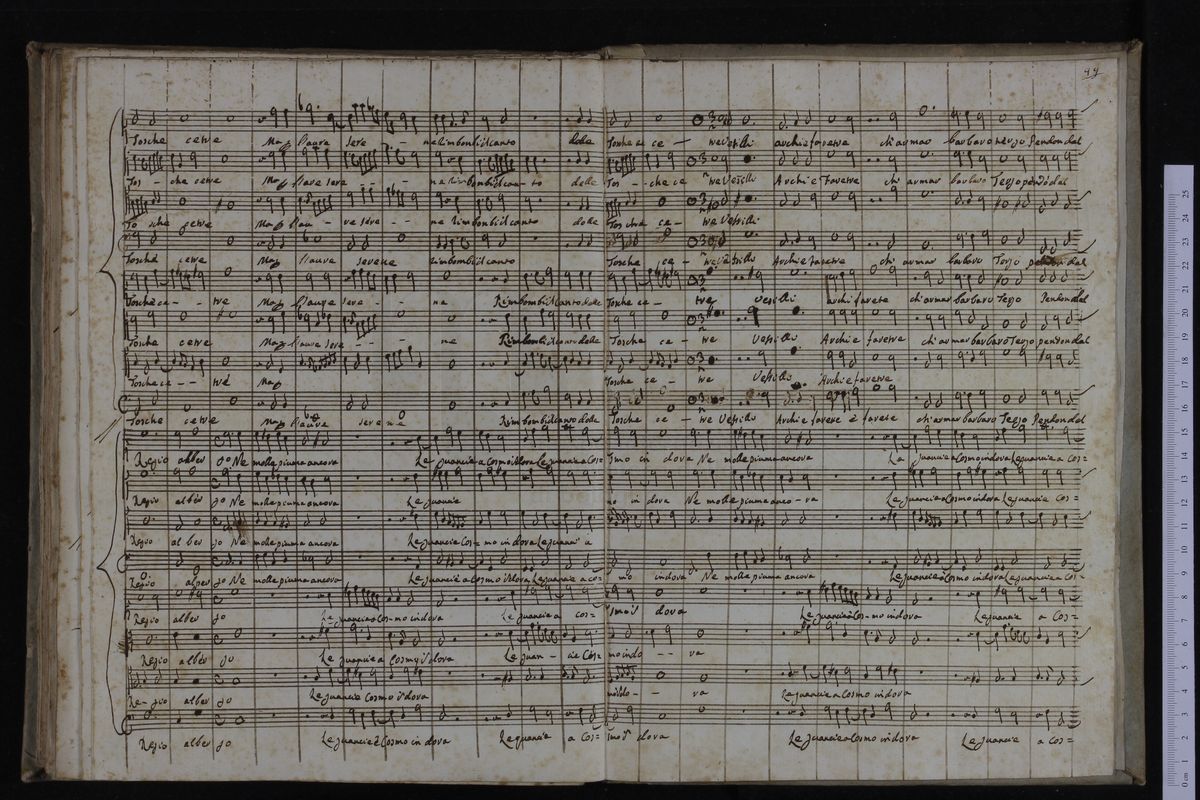 Tosche cetre Ma Laure sere - - ne Rimbombi il canto dolle Tosche ce - tre Vesilli archi e faretre chi armar barbaro Tergo Pendon dal
Tos - che cetre Ma Laure sere - - - ne Rimbombi il can - to dolle Tos - che ce tre Vesilli Archi e Faretre chi armar barbaro Tergo pendō dal
To sche cetre Ma Lau - re sere - - ne Rimbombi il canto dolle Tosche ce - tre Vessilli
Tosche cetre Ma Laure serene Rimbombi il canto Tosche ce - tre Vessilli Archi e faretre chi armar barbaro Tergo pendon dal
Tosche ce - - tre Ma Laure sere - - ne Rimbombi il canto dolle Tosche ce - tre Vesilli archi e farete chi armar barbaro Tergo Pendon dal
Tosche cetre Ma Laure sere - - - ne Rimbombi il canto dolle Tosche ce - tre Vessilli Archi e faretre chi armar barbaro Tergo pendon dal
Tosche ce - - tre Ma Tosche ce - tre Vessilli Archi e faretre
Tosche cetre Ma Laure serene Rimbombi il canto dolle Tosche ce - tre Vessilli Archi e farete è farete chi armar barbaro Tergo Pendon dal
Regio alber go Ne molle piuma ancora Le guancie a Cosmo Le guancie a Cos= Smo in dova Ne molle piuma ancora Le guancie a Cosmo indova Le guancie a Cos=
Regio alber go Ne molle piuma ancora Le guancie mo in dova Ne molle piuma anco - ra Le guancie a Cosmo indova Le guancie Cos=
Regio al ber go Ne molle piuma ancora Le guancie Cos= mo in dova Le guanci a
Regio alber go Ne molle piuma ancora Le guancie a Cosmo Le guancie a co= mo indova Ne molle piuma ancora Le guancie a Cosmo indova Le guancie a Cos=
Regio alber go Le guancie a Cos - mo indova Le guancie a cos= dova Le guancie a Cos - mo indova Le guancie a Cos=
Regio alber go Le guancie a Cosmo dova Le guan - cie Cos= mo indo - - va
Re - gio alber go Le guancie Cosmo dova - - va Le guancie a Cosmo indova
Regio alber go Le guancie Cosmo in dova Le guancie a Cos= dova Le guancie a Cosmo indova Le guancie a Cos=
0 cm 1 2 3 4 5 6 7 8 9 10 11 12 13 14 15 16 17 18 19 20 21 22 23 24 25